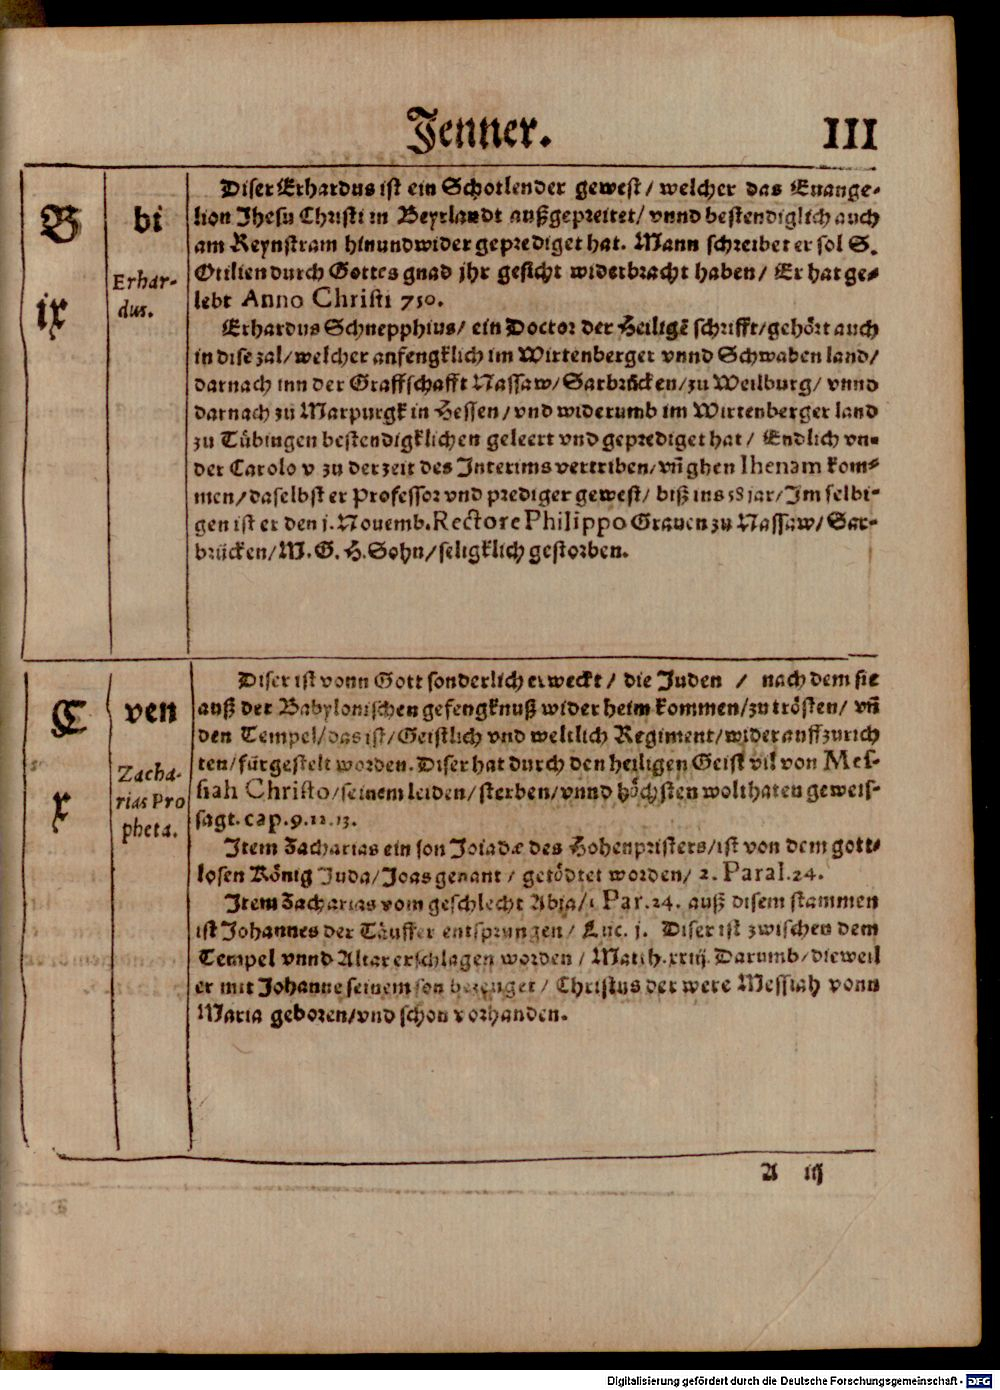 Jenner. III
B bi
ix
Erhar-
dus.
Diser Erhardus ist ein Schotlender gewest / welcher das Euange-
lion Jhesu Christi in Beyrlandt außgepreitet / vnnd bestendiglich auch
am Reynstram hin und wider geprediget hat. Mann schreibet er sol S.
Ottilien durch Gottes gnad jhr gesicht widerbracht haben / Er hat ge-
lebt Anno Christi 750.
Erhardus Schnepphius / ein Doctor der Heiligē schrifft / gehört auch
in dise zal / welcher anfengklich im Wirtenberger vnnd Schwaben land /
darnach inn der Graffschafft Nassaw / Sarbrücken / zu Weilburg / vnnd
darnach zu Marpurgk in Hessen / vnd widerumb im Wirtenberger land
zu Tübingen bestendigklichen geleert vnd geprediget hat / Endlich vn-
der Carolo v zu der zeit des Interims vertriben / vñ ghen Ihenam kom-
men / daselbst er Professor vnd prediger gewest / biß ins 58 jar / Im selbi-
gen ist er den j. Nouemb. Rectore Philippo Grauen zu Nassaw / Sar-
brücken / M. G. H. Sohn / seligklich gestorben.
C ven
x
Zacha-
rias Pro
pheta.
Diser ist vonn Gott sonderlich erweckt / die Juden / nach dem sie
auß der Babylonischen gefengknuß wider heim kommen / zu trösten / vñ
den Tempel / das ist / Geistlich vnd weltlich Regiment / wider auffzurich
ten / fürgestelt worden. Diser hat durch den heiligen Geist vil von Mes-
siah Christo / seinem leiden / sterben / vnnd höchsten wolthaten geweis-
sagt. cap. 9. 12. 13.
Item Zacharias ein son Joiadæ des Hohenpristers / ist von dem gott-
losen König Juda / Joas genant / getödtet worden / 2. Paral. 24.
Item Zacharias vom geschlecht Abja / 1 Par. 24. auß disem stammen
ist Johannes der Täuffer entsprungen / Luc. j. Diser ist zwischen dem
Tempel vnnd Altar erschlagen worden / Matth. xxiij. Darumb / dieweil
er mit Johanne seinem son bezeuget / Christus der were Messiah vonn
Maria geboren / vnd schon vorhanden.
A iij
Digitalisierung gefördert durch die Deutsche Forschungsgemeinschaft - DFG